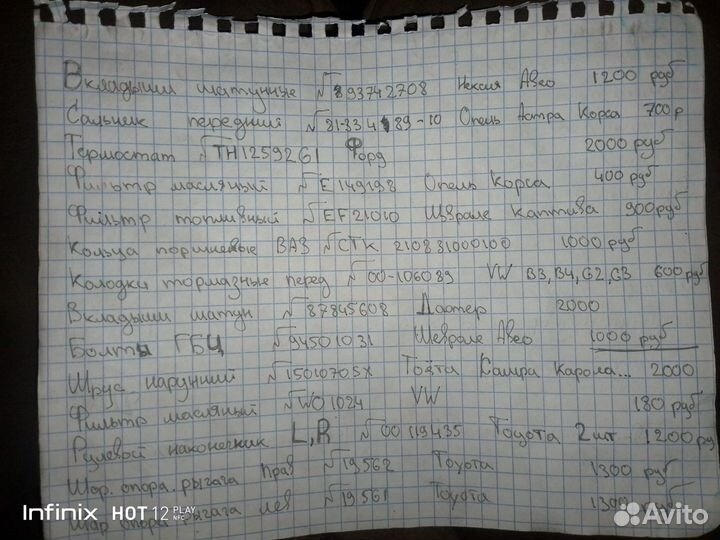 Вкладыши шатунные √893742708 Нексия Авео 1200 руб
Сальник передний √81-334189-10 Опель Астра Корса 700 р
Термостат √TH1259261 Форд 2000 руб
Фильтр масляный √E149198 Опель Корса 400 руб
Фильтр топливный √EF21010 Шеврале Каптива 900 руб
Кольца поршневые ВАЗ √СТК 210831000100 1000 руб
Колодки тормазные перед √00-106089 VW B3, B4, G2, G3 600 руб
Вкладыши шатун √87845608 Дастер 2000
Болты ГБЦ √94501031 Шеврале Авео 1000 руб
Шрус наружний √15010705X Тойта Камра Карола... 2000
Фильтр масляный √WO1024 VW 180 руб
Рулевой наконечник L, R √00119435 Тоуота 2 шт 1200 ру
Шар. опора. рычага прав √19562 Тоуота 1300 руб
Шар опора рычага лев √19561 Тоуота 1300 руб
Infinix HOT 12 PLAY NFC
Avito